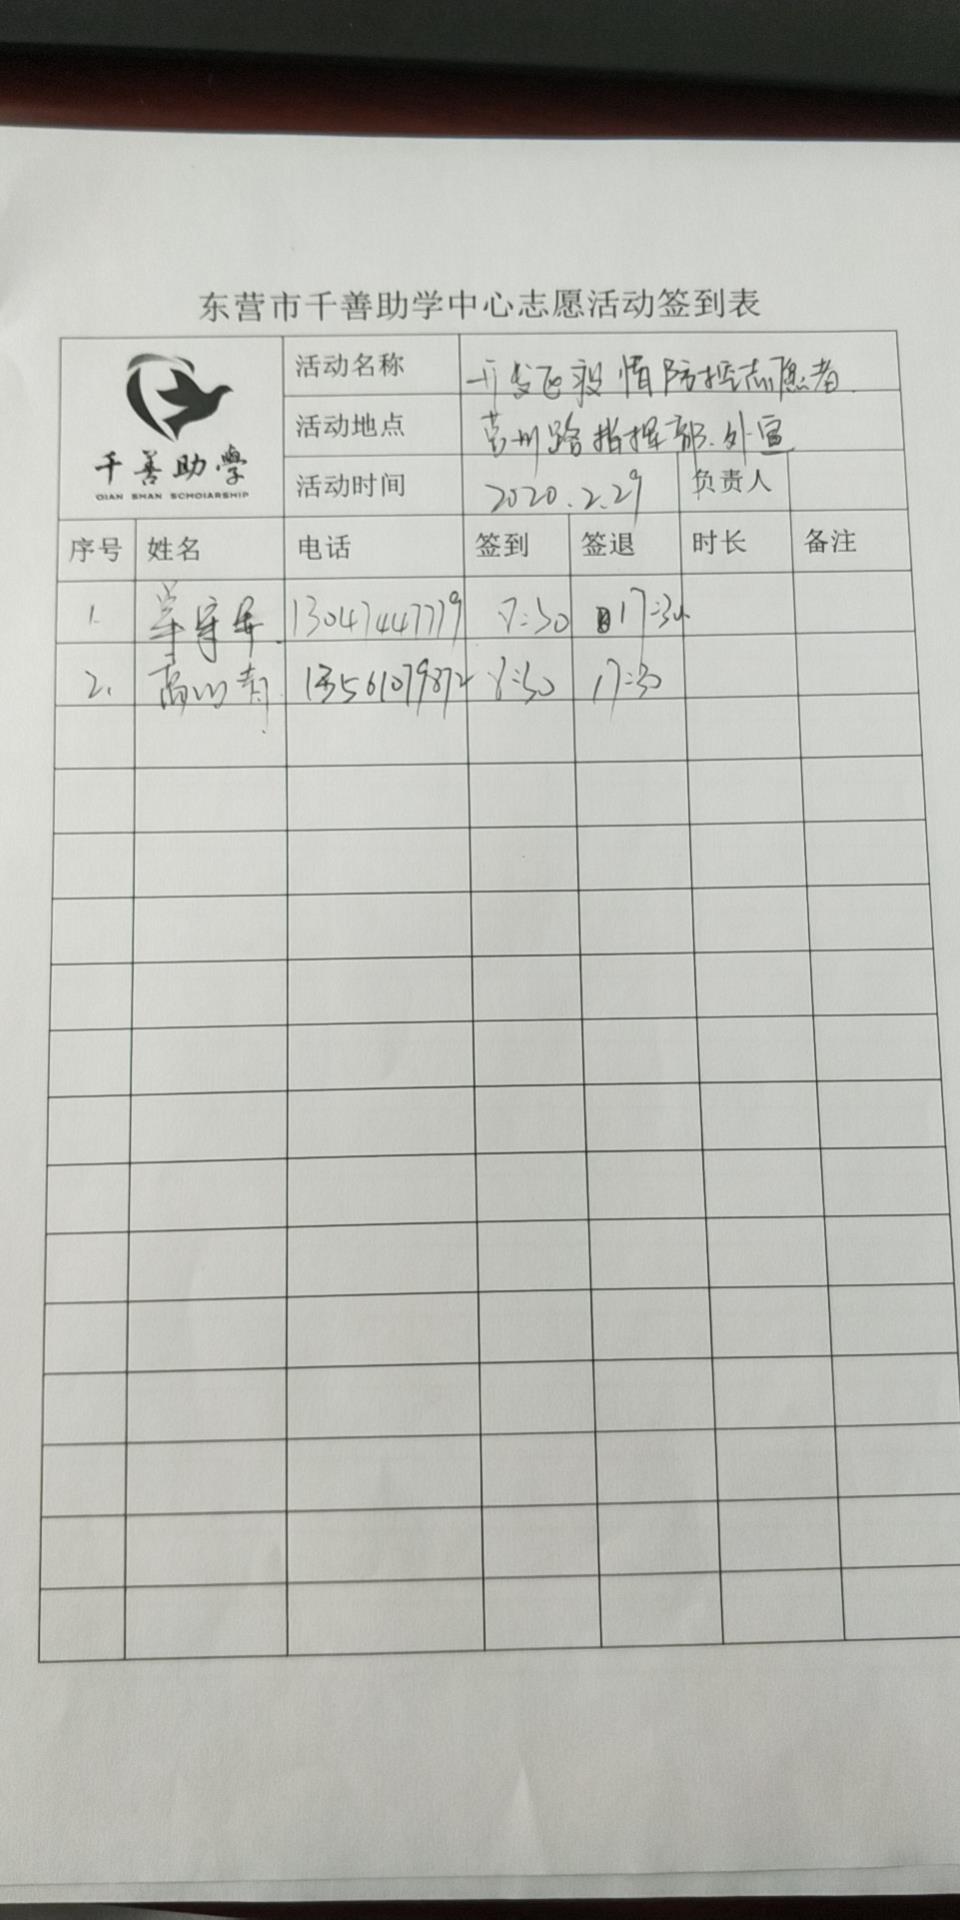 东营市千善助学中心志愿活动签到表
千善助學
QIAN SHAN SCHOLARSHIP
活动名称 开发区疫情防控志愿者
活动地点 莒州路指挥部.外宣
活动时间 2020.2.29 负责人
序号 姓名 电话 签到 签退 时长 备注
1. 13047447779 17:30
2. 高 青 13561079872 8:30 17:30